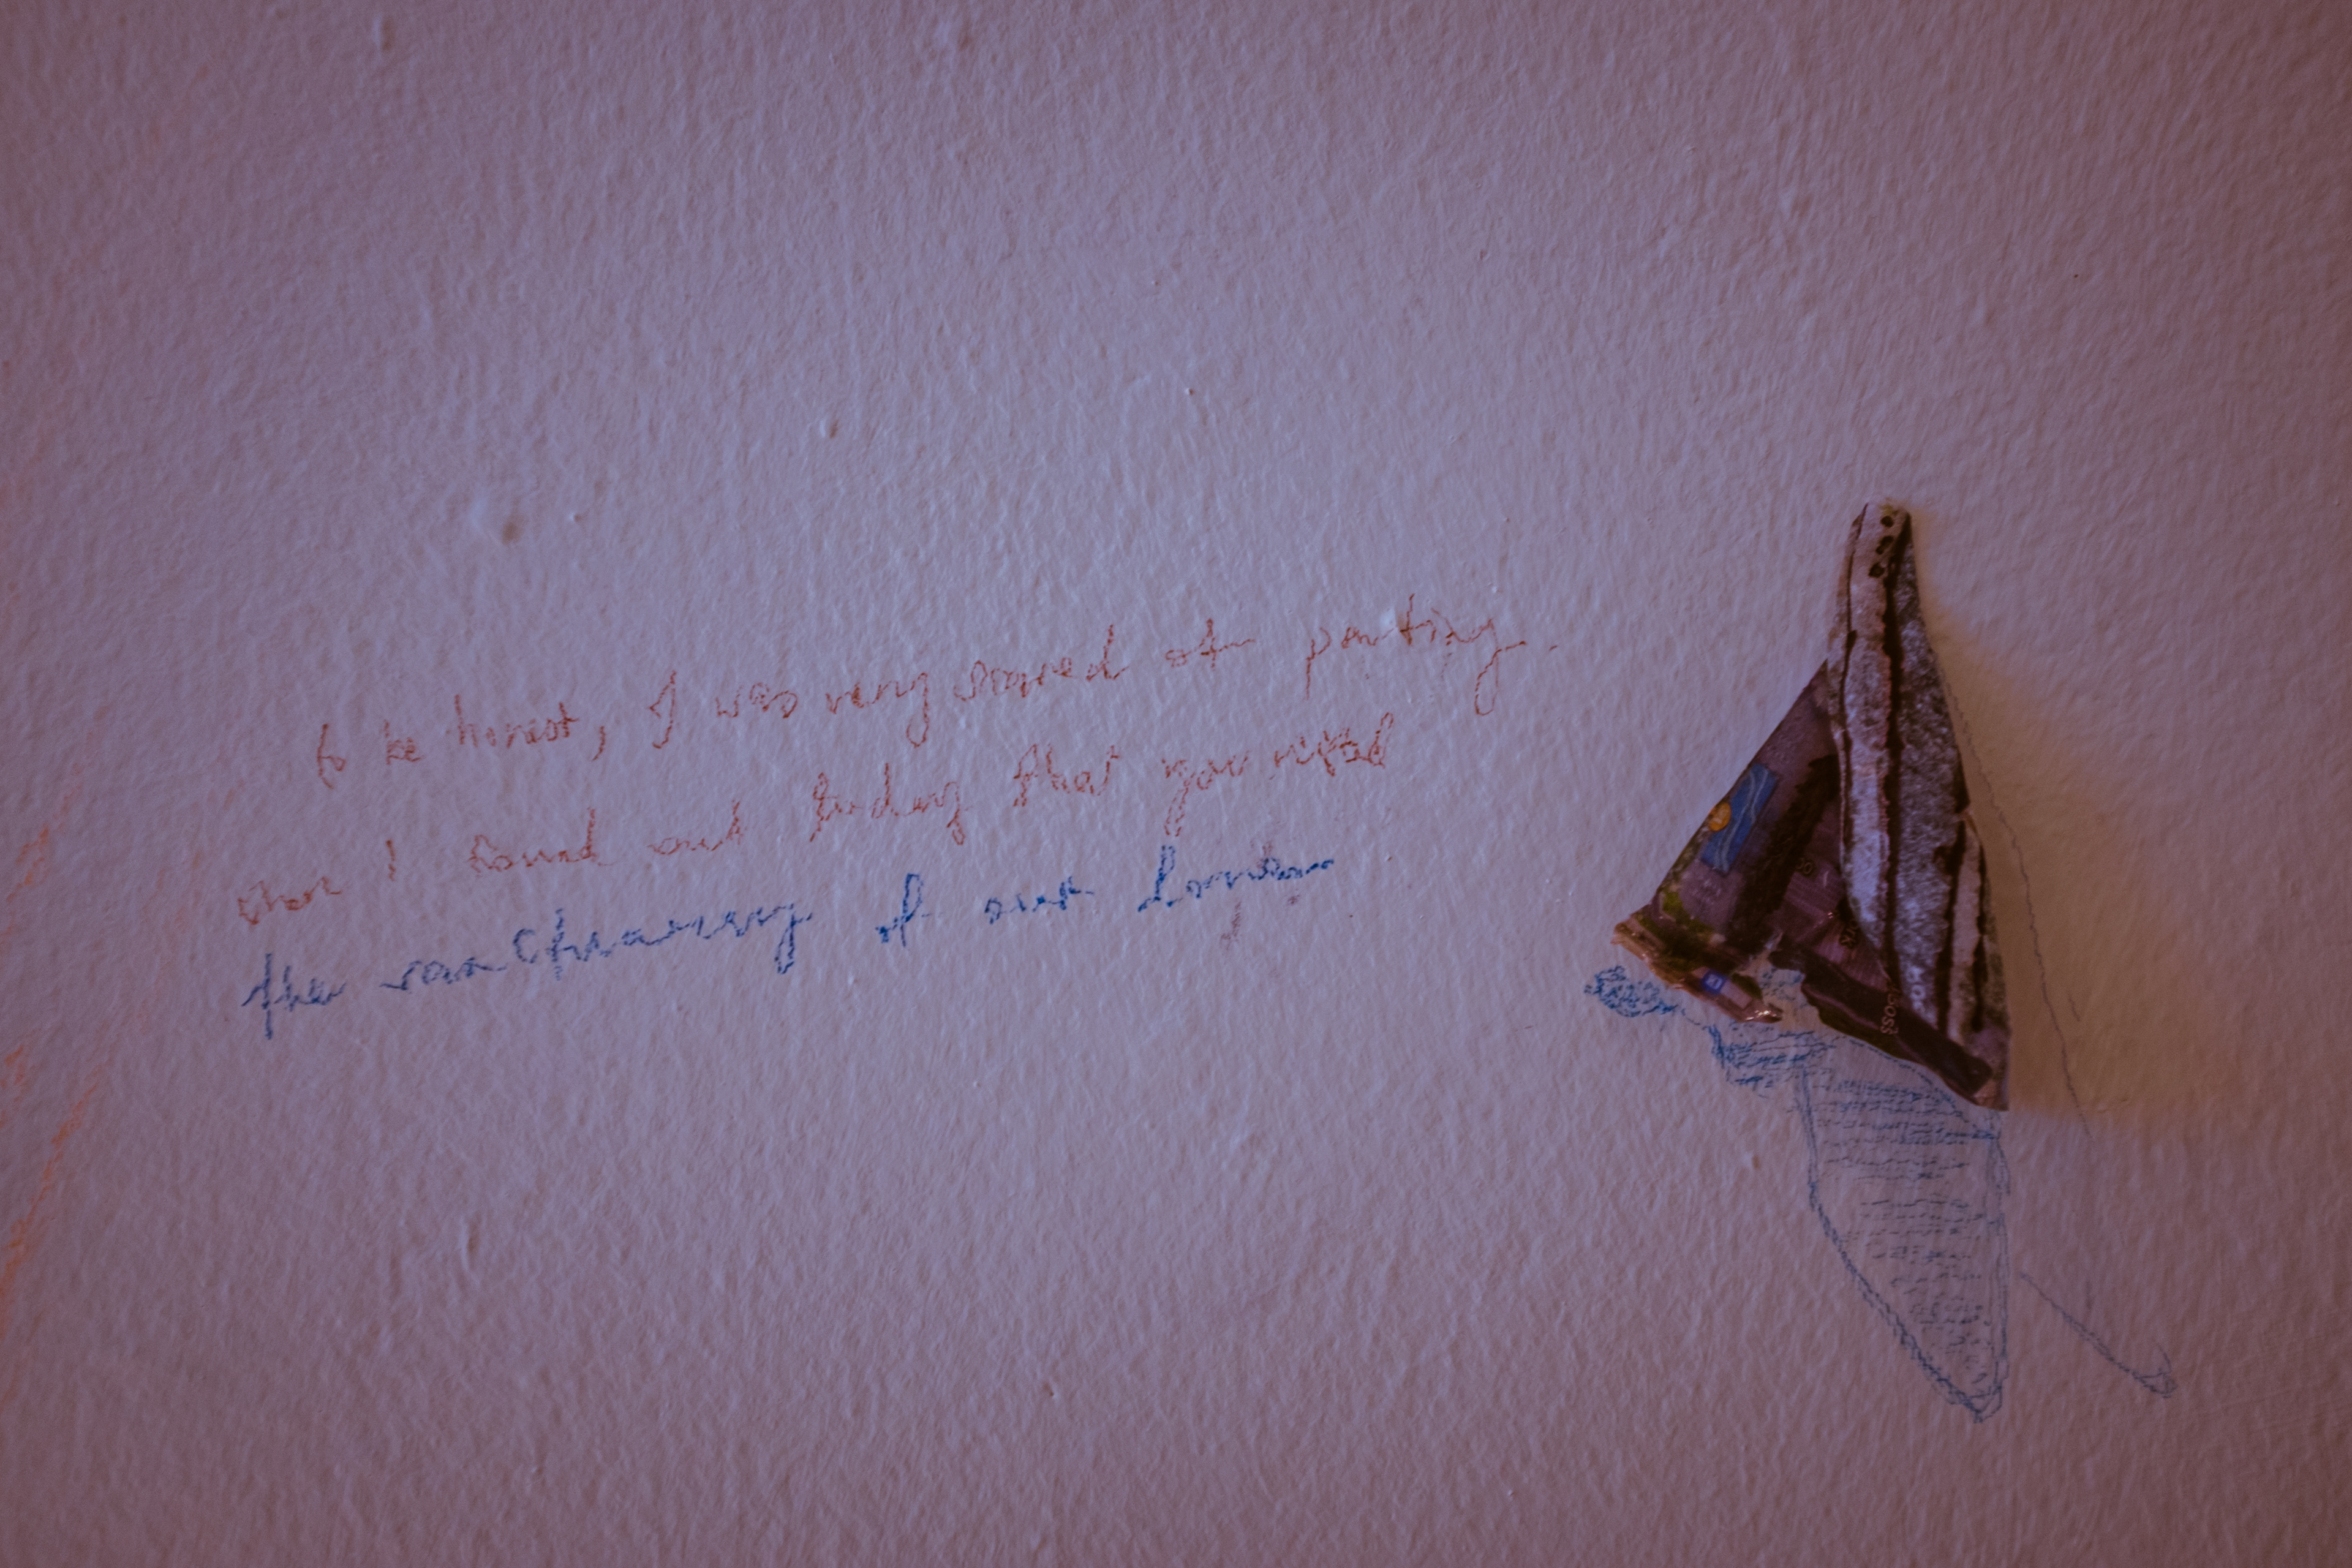 to be honest, I was very scared of parting.
when I found out today that you need
the sanctuary of our London